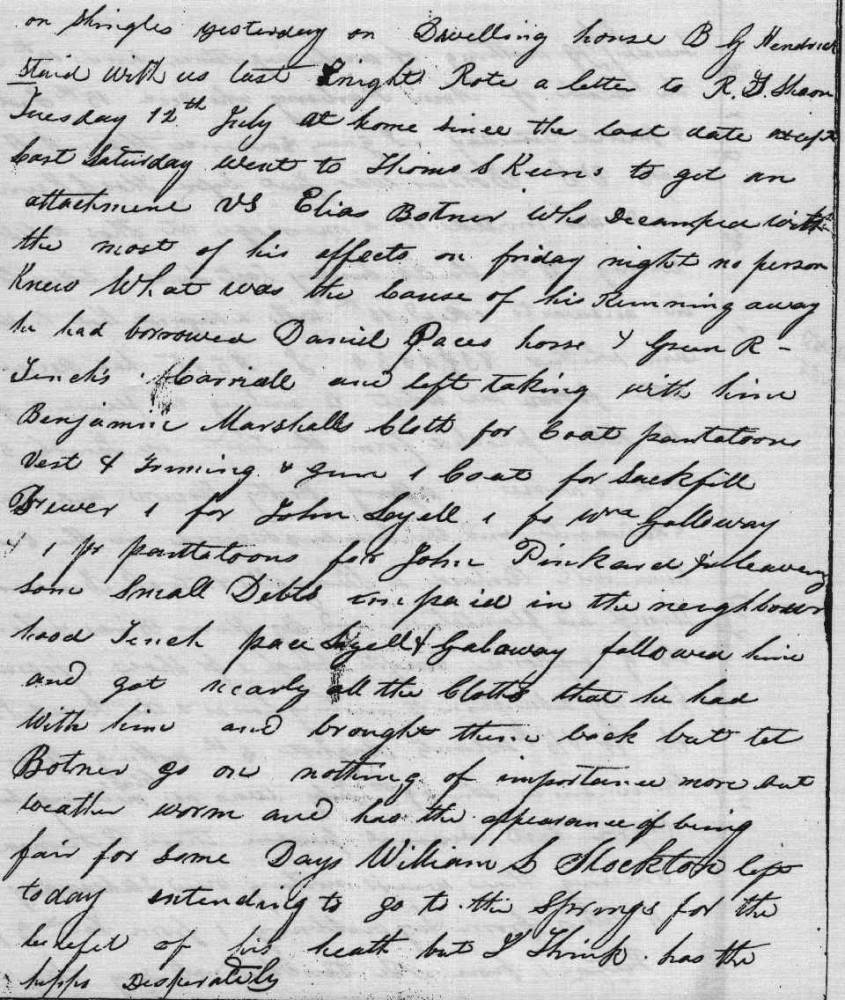 on Shingles yesterday on Dwelling house B G Hendrick
Staid with us last Knight Rote a letter to R. G. 
Tuesday 12th July at home since the last date except
Last Saturday went to Thoms S Keens to get an
attachment VS Elias Botner Who Decamped with
the most of his effects on friday night no person
Knew What was the Cause of his Running away
he had borrowed Daniel Paces horse & Green R
Tench's and left taking with him
Benjamin Marshalls Cloth for Coat pantaloons
Vest & Triming & gun 1 Coat for Sackfill
Brewer 1 for John Soyell 1 fo Wm Galloway
& 1 pr pantaloons for John Pinkard & leaving
some Small Debts unpaid in the neighbour
hood Tench pace Soyell & Galaway followed him
and got nearly all the Cloths that he had
With him and brought them back but let
Botner go on nothing of importance more but
weather worm and has the appearance of being
fair for some Days William S Stockton left
today intending to go to the Springs for the
benefit of his heath but I Think has the
hipps Desperately